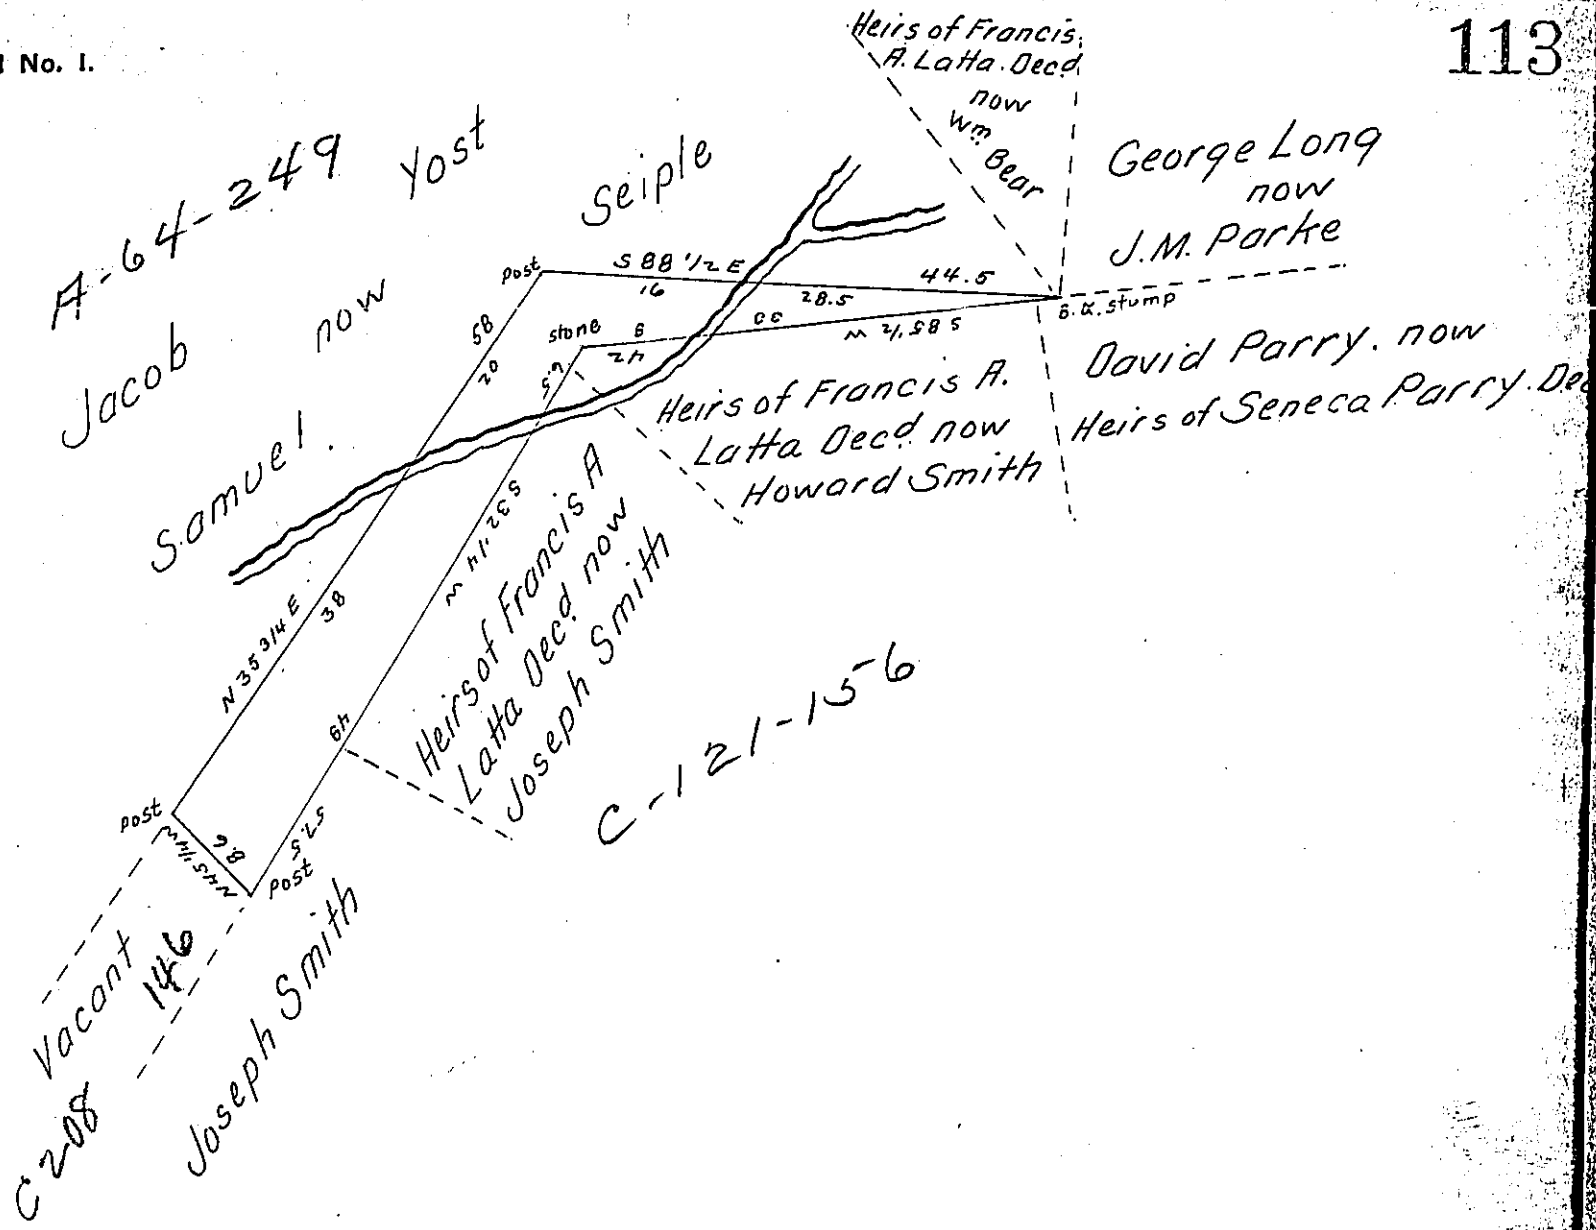 No. 1.
113
Heirs of Francis
A. Latta. Decd
now
Wm. Bear
George Long
now
J.M. Parke
A-64-249
Jacob Yost
now
Samuel. Seiple
post
S 88 1/2 E
16
28.5
44.5
B.O. stump
stone
9
42
33
S 85 1/2 W
58
20
6.5
David Parry. now
Heirs of Seneca Parry. Dec
Heirs of Francis A.
Latta Decd. now
Howard Smith
S 32 1/4 W
Heirs of Francis A
Latta Decd. now
Joseph Smith
N 35 3/4 E
38
49
57.5
C-121-156
post
8.6
N 45 1/4 W
post
Vacant
146
C 208
Joseph Smith